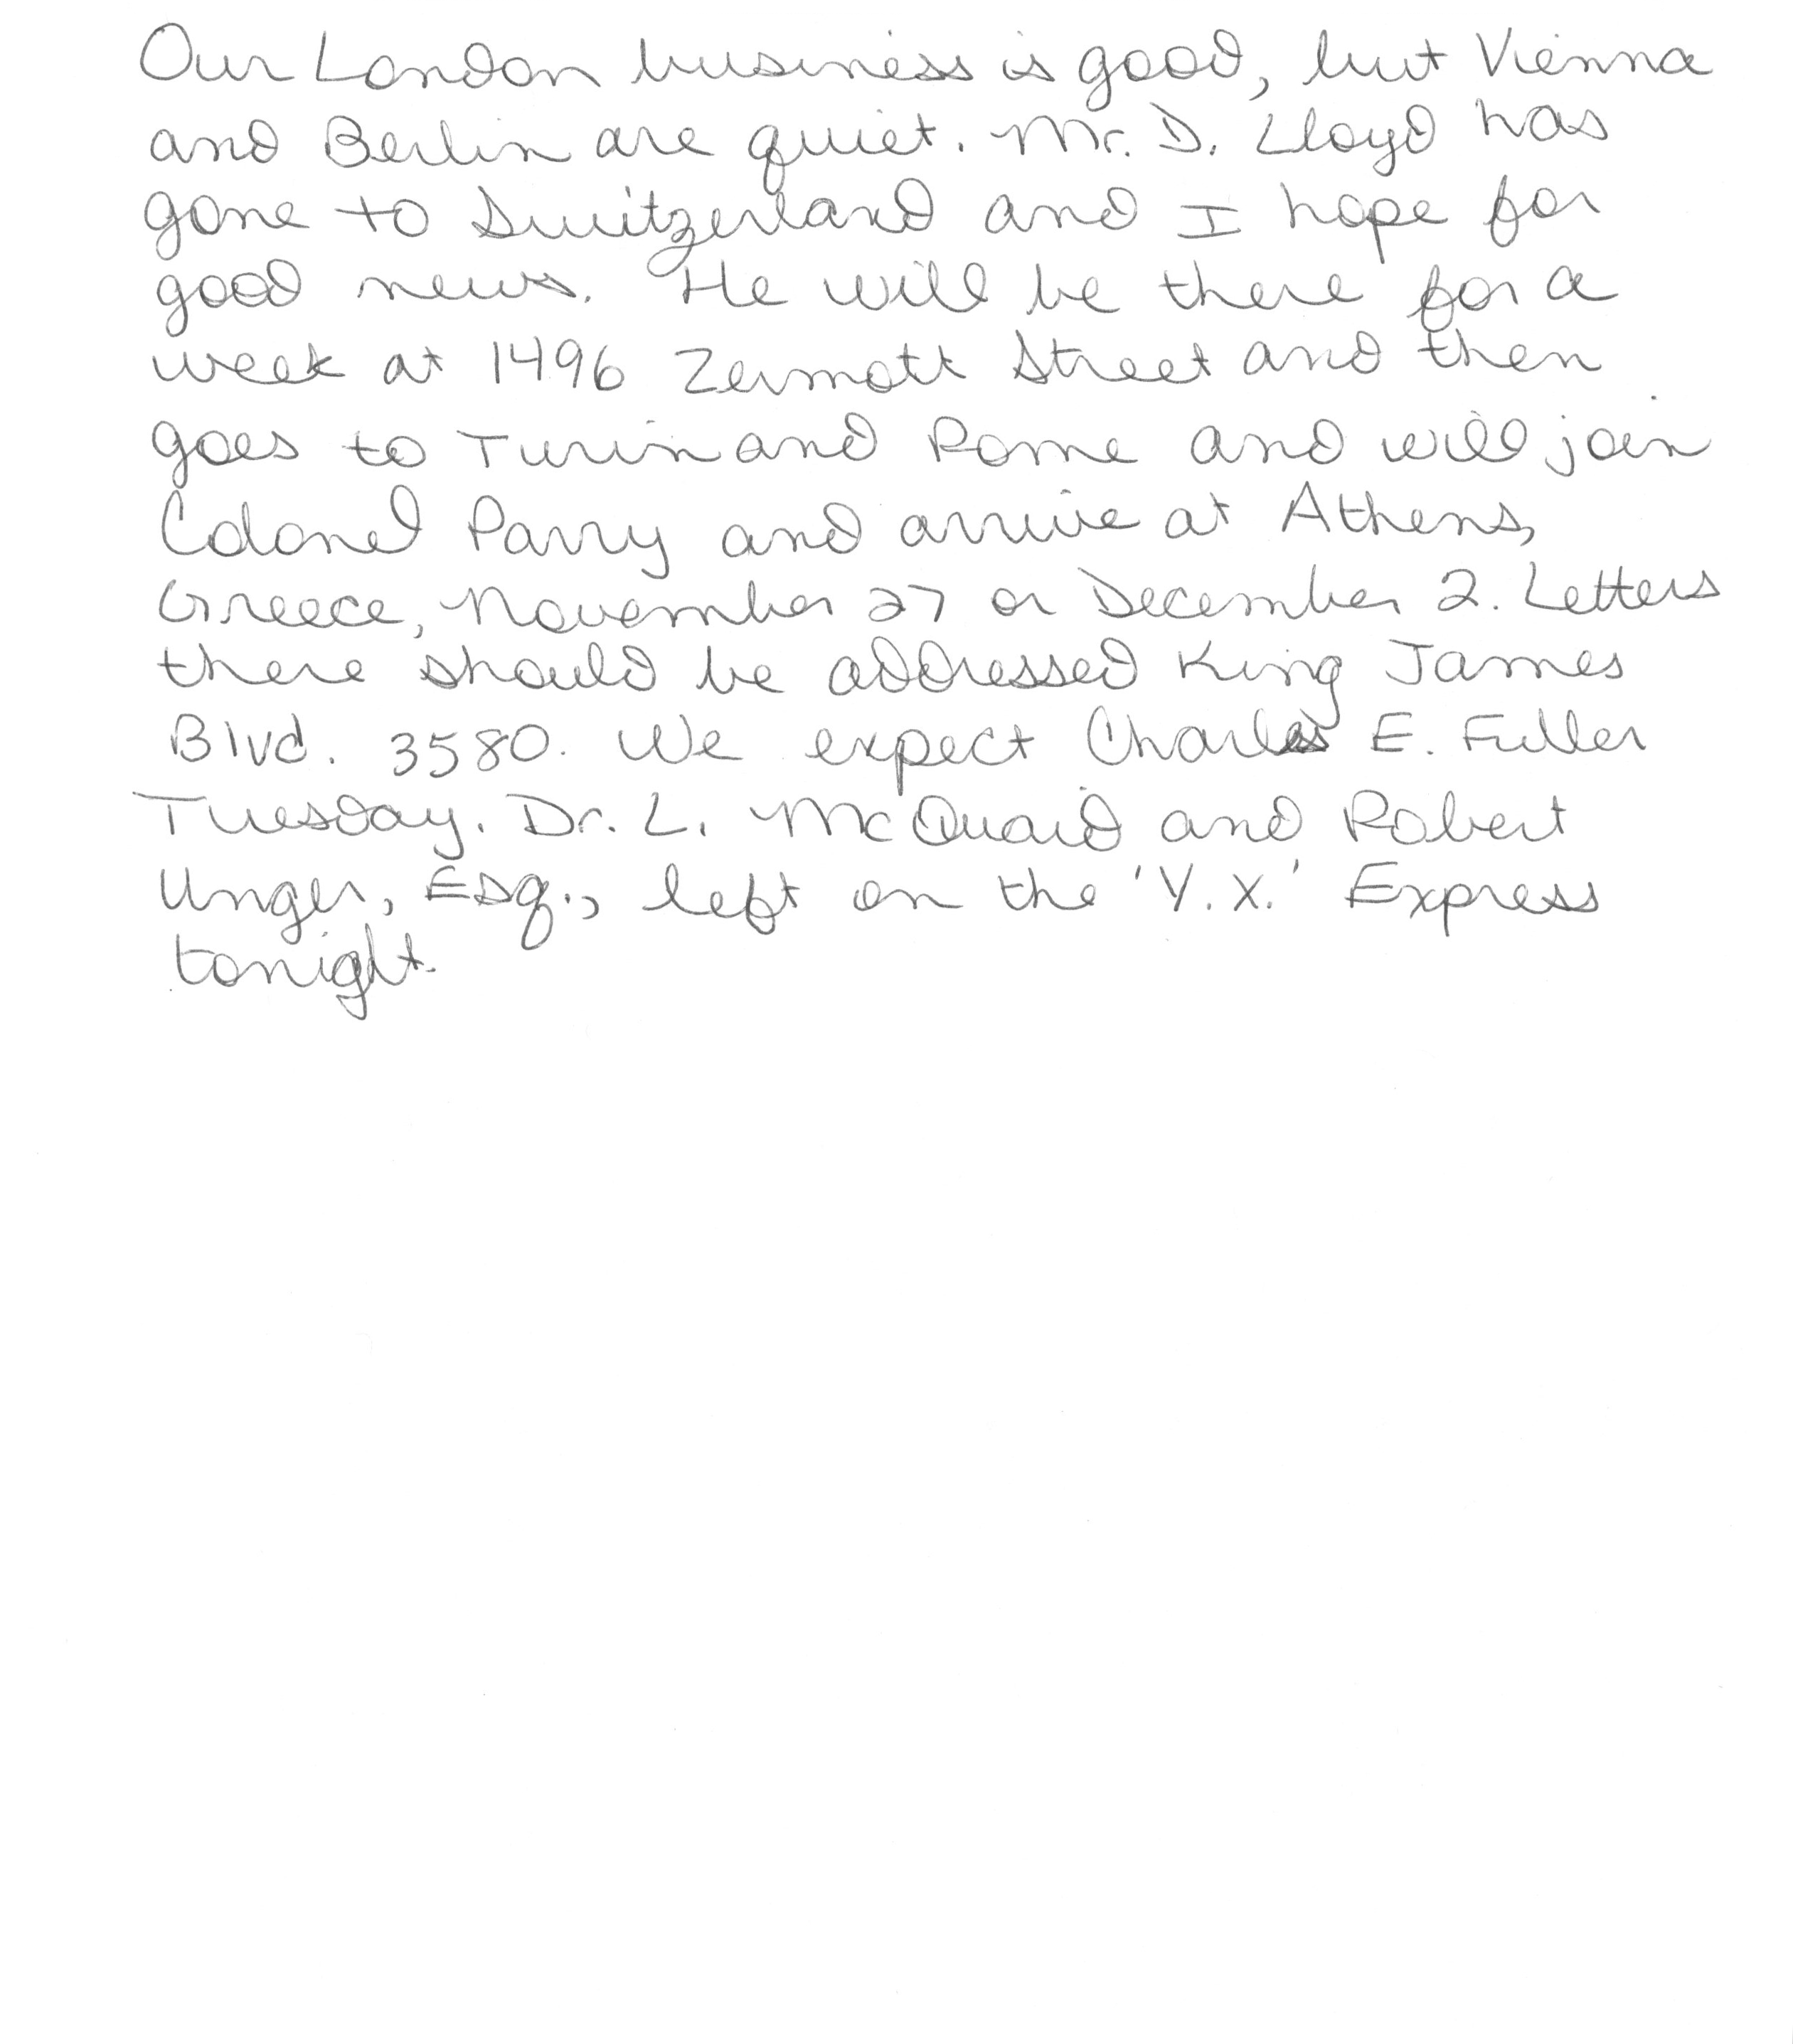 Our London business is good, but Vienna
and Berlin are quiet. Mr. D. Lloyd has
gone to Switzerland and I hope for
good news. He will be there for a
week at 1496 Zermott Street and then
goes to Turin and Rome and will join
Colonel Parry and arrive at Athens,
Greece, November 27 or December 2. Letters
there should be addressed King James
Blvd. 3580. We expect Charles E. Fuller
Tuesday. Dr. L. McQuaid and Robert
Unger, Esq., left on the 'Y.X.' Express
tonight.